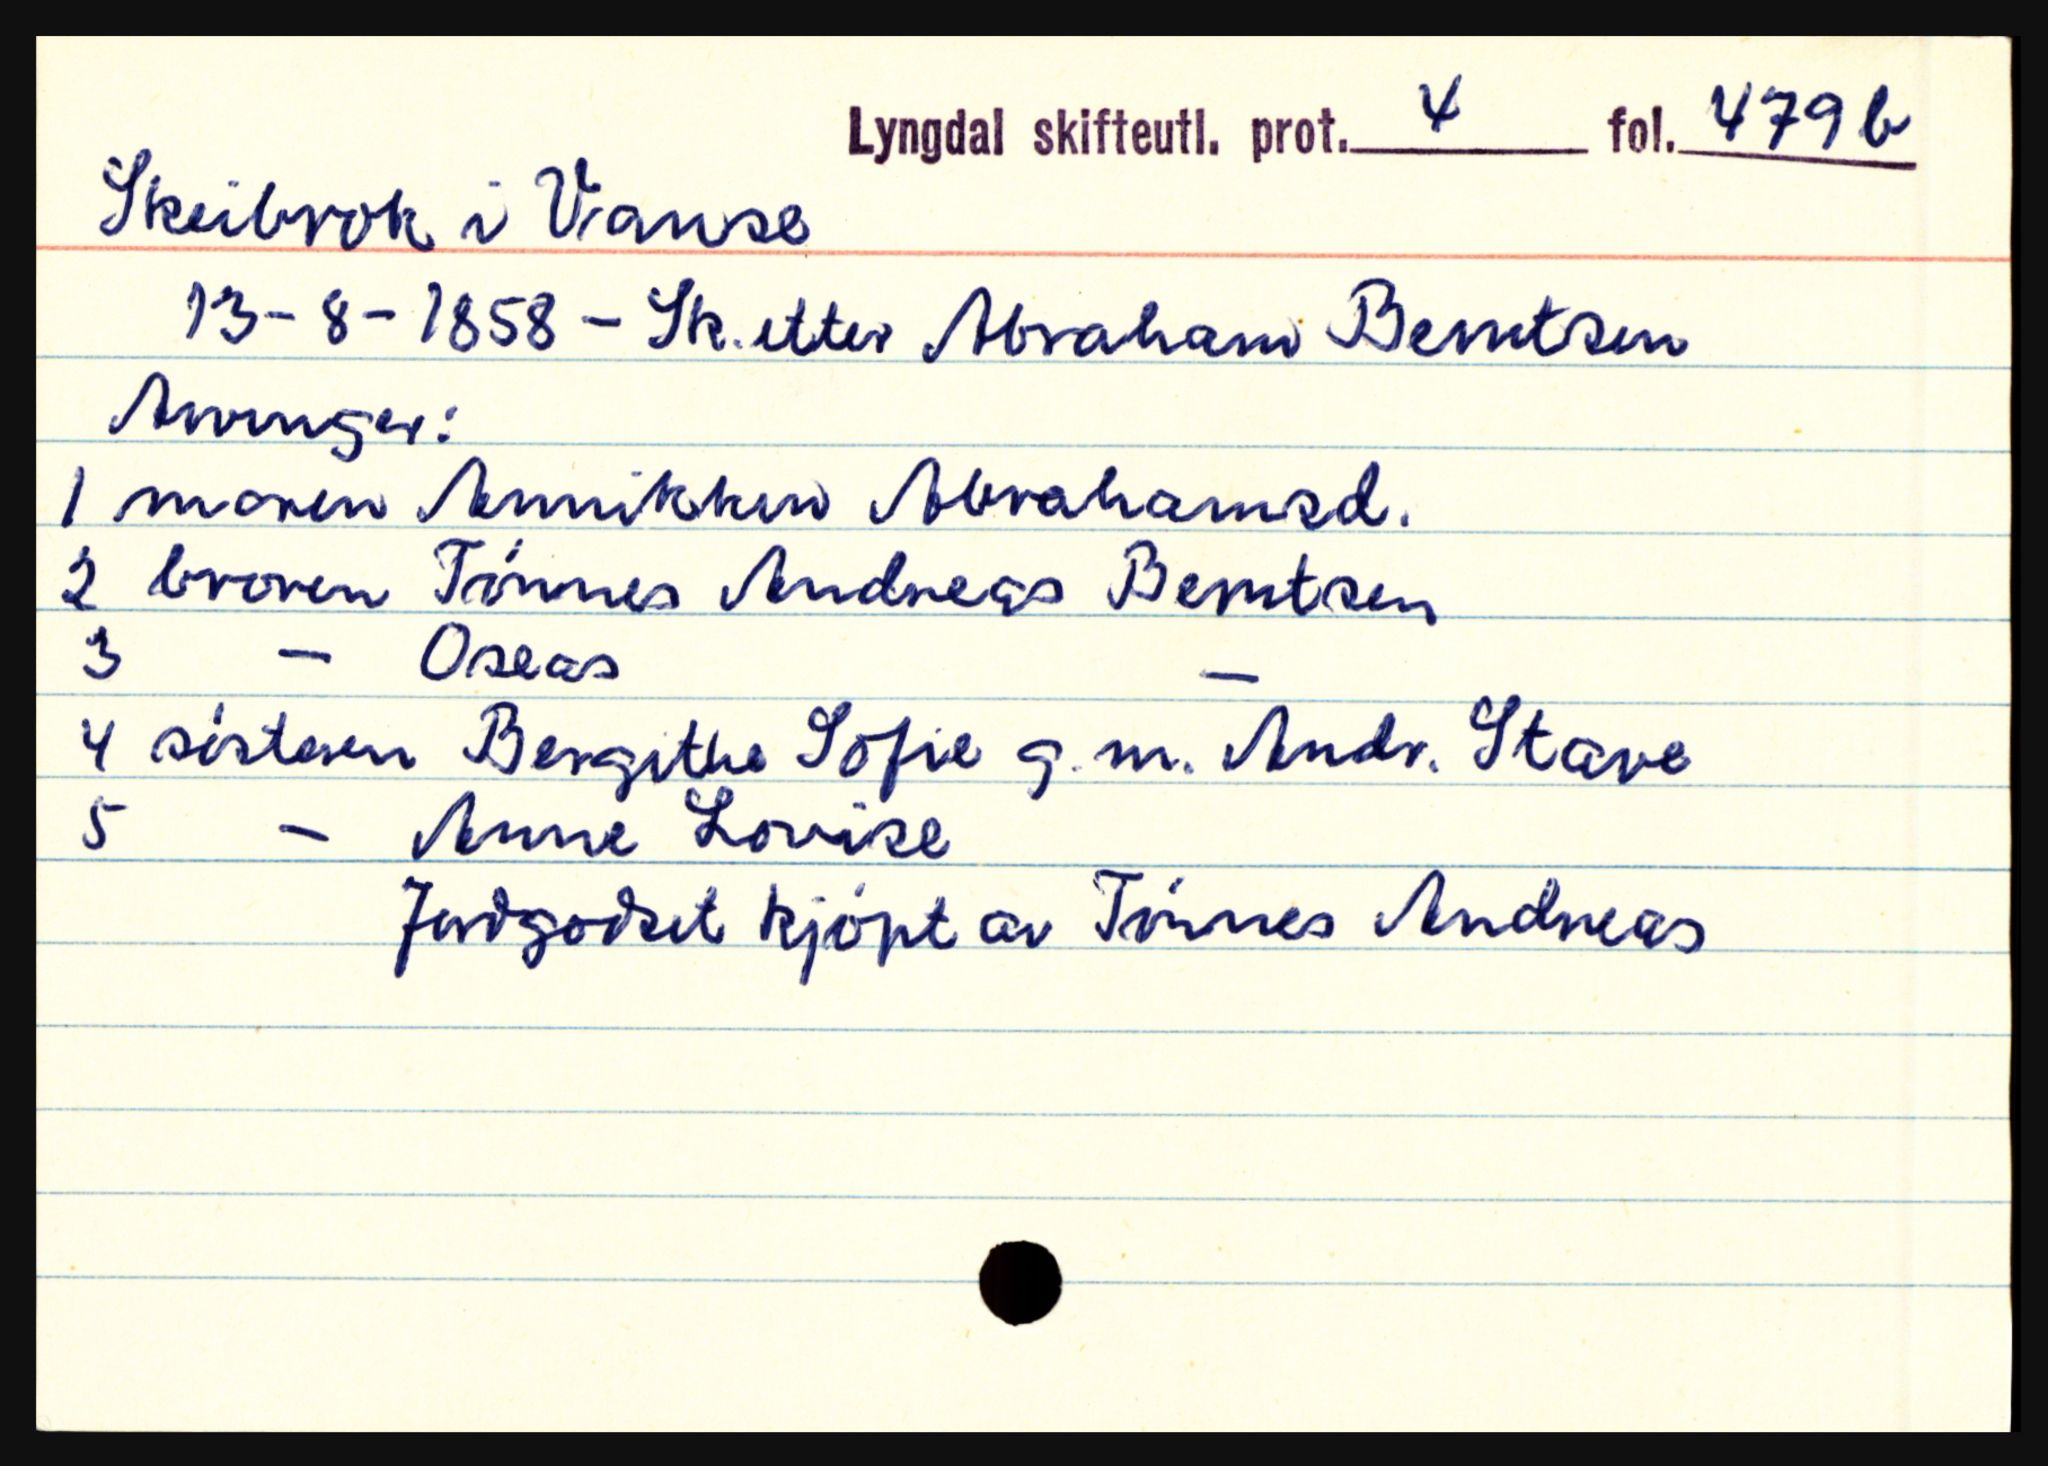 Lyngdal skifteutl. prot. 4 fol. 479 b
Skeibrok i Vanse
13-8-1858 - Sk. etter Abraham Berntsen
Arvinger:
1 moren Annikken Abrahamsd.
2 broren Tónnes Andreas Berntsen
3 - Oseas -
4 sósteren Bergithe Sofie g. m. Andr. Stave
5 - Anne Lovise
Jordgodset kjópt av Tónnes Andreas